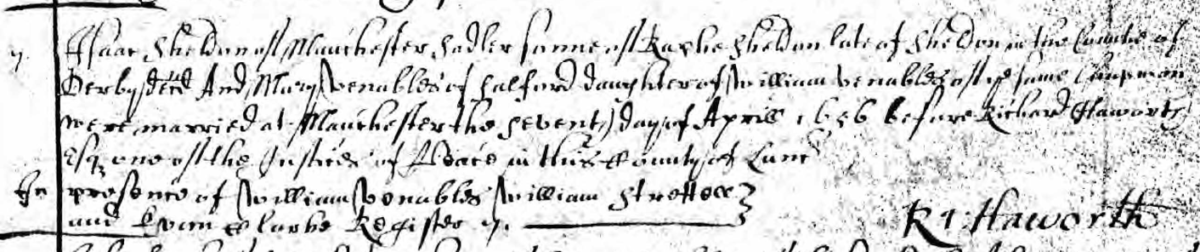 Isaac Sheldon of Manchester sadler sonne of Raphe Sheldon late of Sheldon in the Countie of
Derby decd And Mary Venables of Salford daughter of William Venables of ye same Chapman
were married at Manchester the seventh day of Aprill 1656 before Richard Haworth
Esqr one of the Justices of Peace in this County of Lanc
In presence of William Venables William
and Clarke Register
Ri Haworth